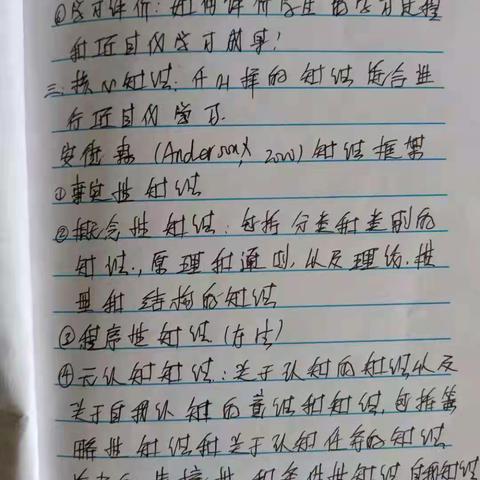 ⑥学习评价:如何评价学生的学习过程
和项目化学习成果!
三、核心知识:什么样的知识适合进
行项目化学习.
安德森(Anderson, 2001)知识框架
①事实性知识
②概念性知识:包括分类和类别的
知识.,原理和通则,以及理论.模
型和结构的知识
③程序性知识(方法)
④元认知知识:关于认知的知识以及
关于自我认知的意识和知识,包括策
略性知识和关于认知任务的知识
和条件性知识 自我知识